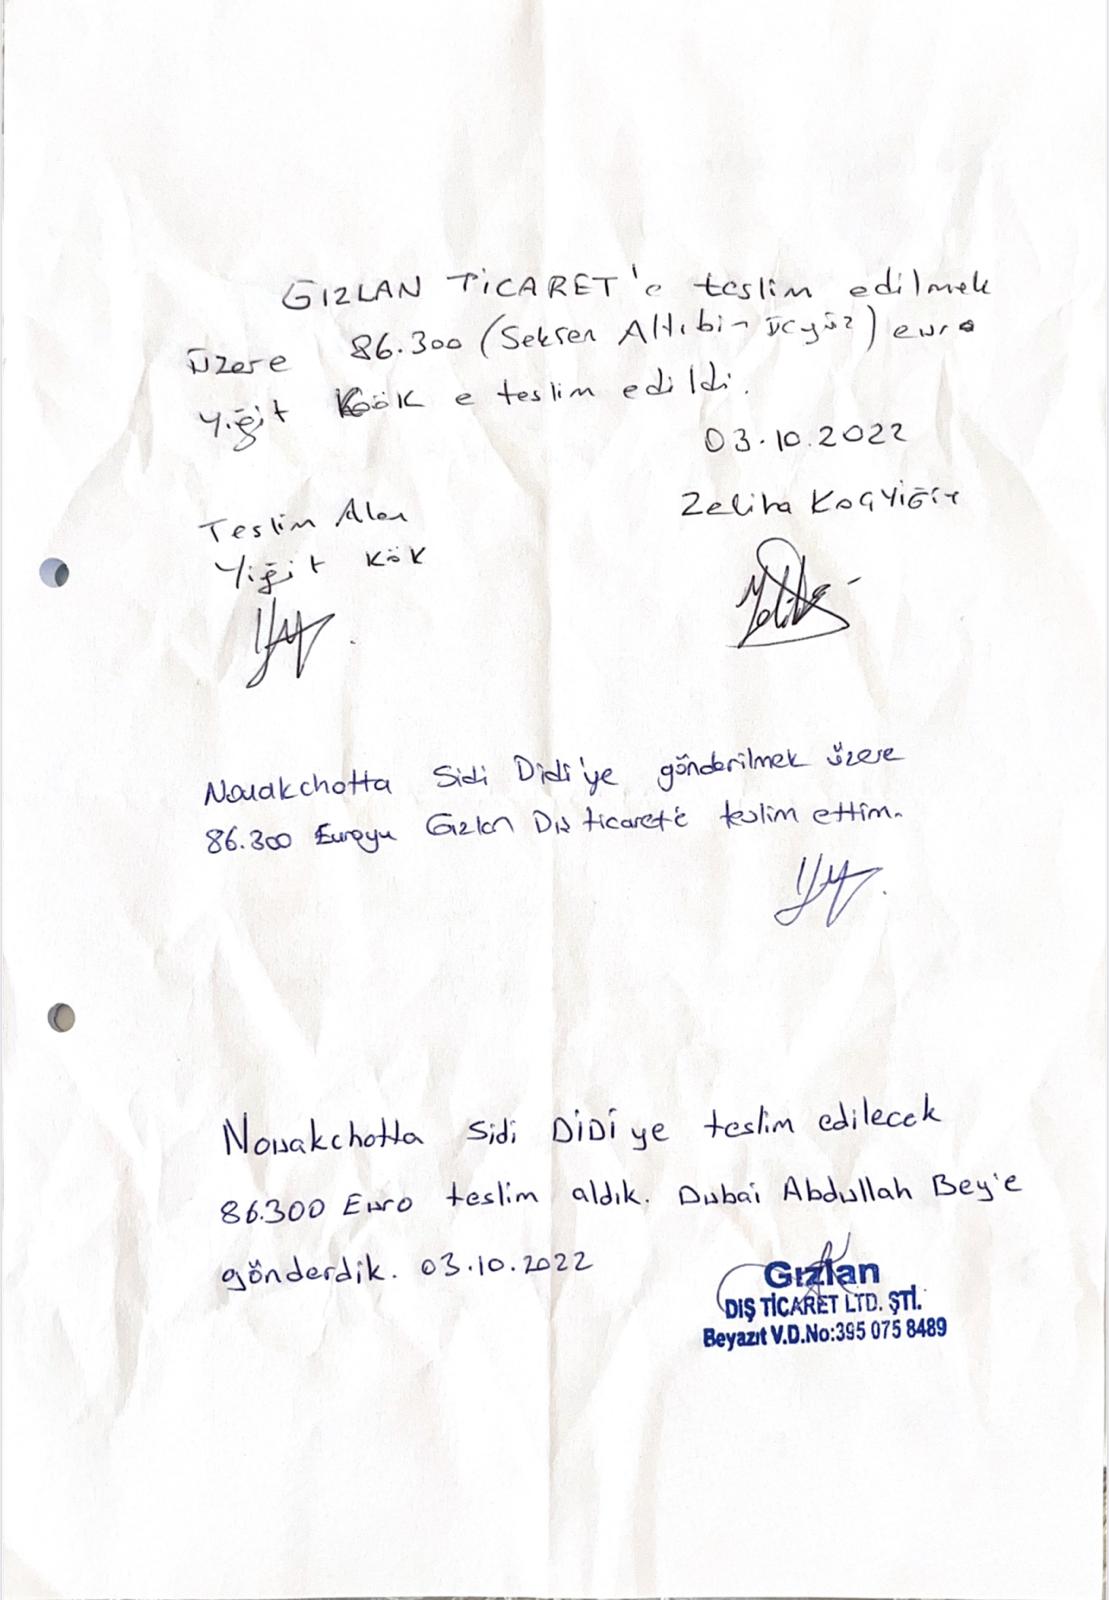 GIZLAN TİCARET'e teslim edilmek
üzere 86.300 (Seksen Altıbin üçyüz) euro
Yiğit KÖK e teslim edildi.
03.10.2022
Teslim Alan
Zeliha KOÇYİĞİT
Yiğit KÖK
Nouakchotta Sidi Didi'ye gönderilmek üzere
86.300 Euroyu Gızlan Dış ticaret'e teslim ettim.
Nouakchotta Sidi DİDİ ye teslim edilecek
86.300 Euro teslim aldık. Dubai Abdullah Bey'e
gönderdik. 03.10.2022
Gızlan
DIŞ TİCARET LTD. ŞTİ.
Beyazıt V.D.No:395 075 8489